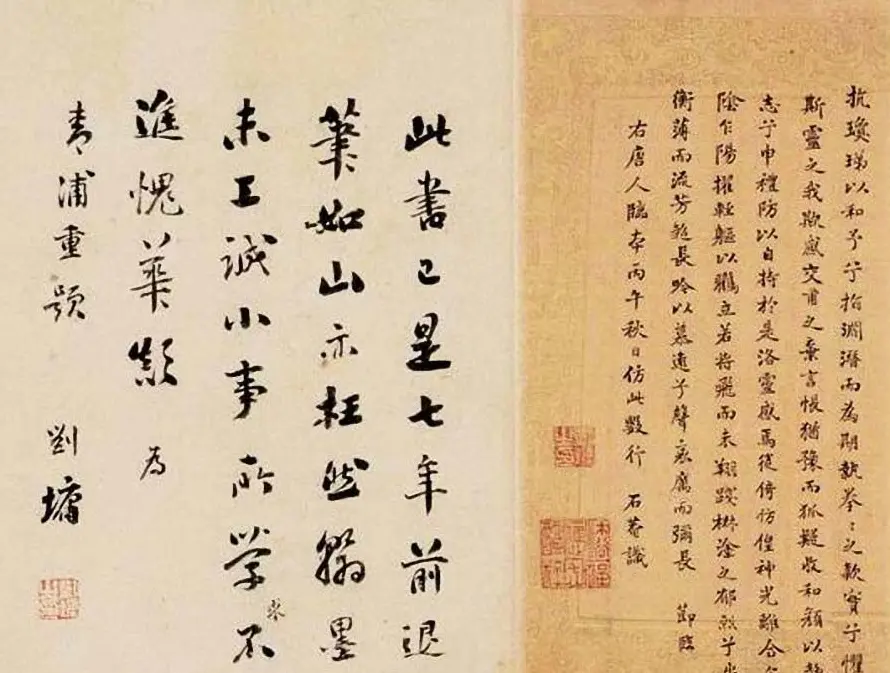 抗瓊珶以和予兮指淵潛而為期執拳〻之款實兮懼
斯靈之我欺感交甫之棄言悵猶豫而狐疑收和顏以靜
志兮申禮防以自持於是洛靈感焉徙倚仿偟神光離合
陰乍陽擢輕軀以鶴立若將飛而未翔踐椒塗之郁烈兮步
衡薄而流芳超長吟以慕遠兮聲哀厲而彌長 節臨
右唐人臨本丙午秋日仿此數行 石菴識
此書已是七年前退
筆如山亦枉然翰墨
未工誠小事所學不
進愧華顛 為
青浦重題 劉墉